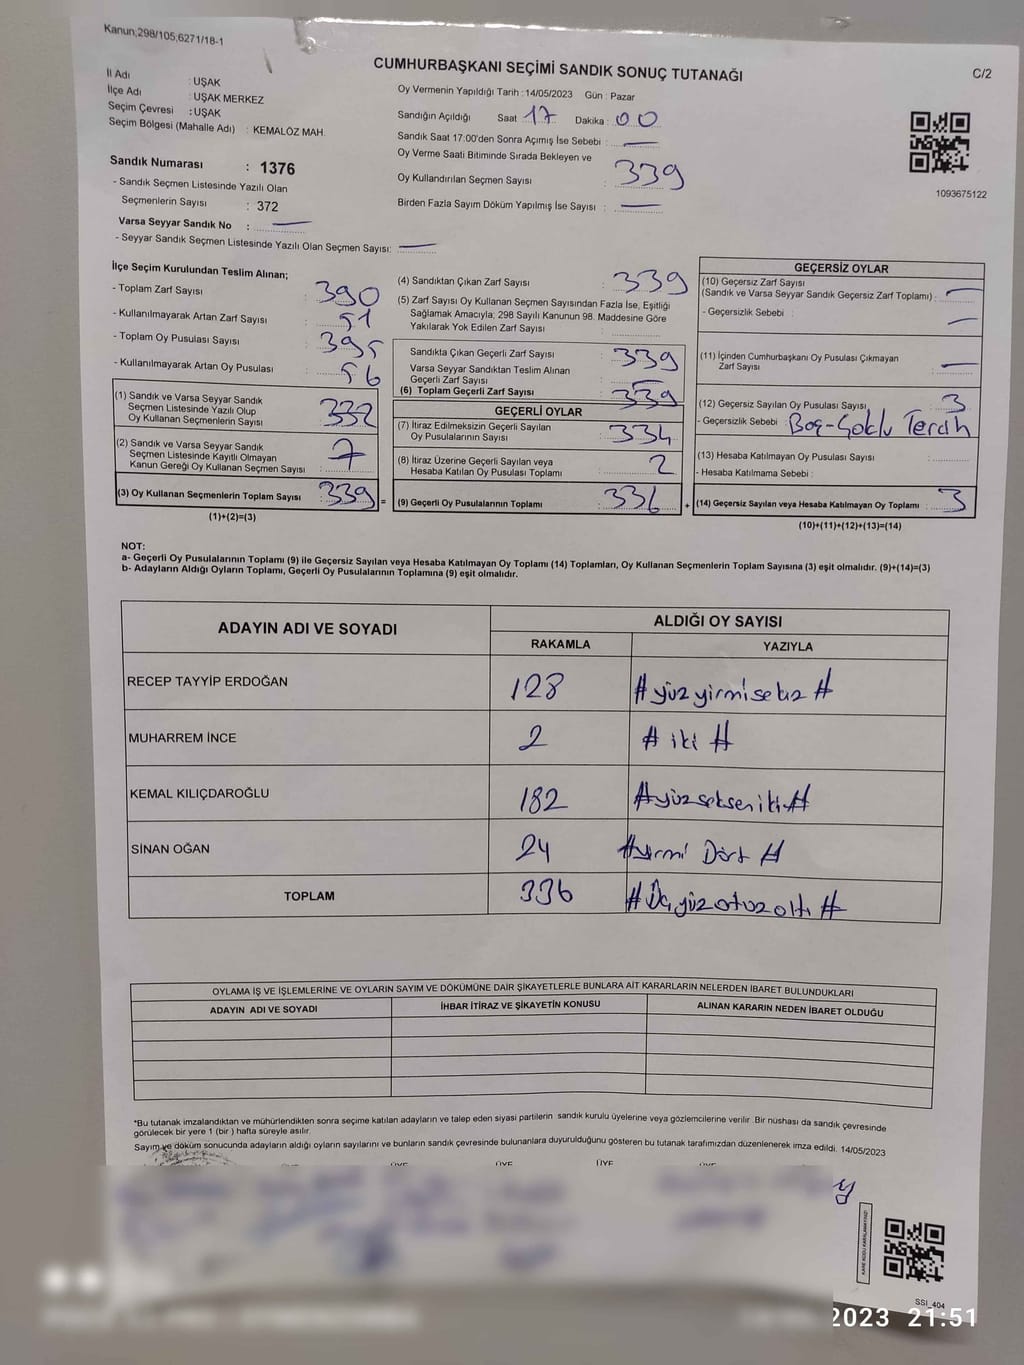 Kanun;298/105,6271/18-1
CUMHURBAŞKANI SEÇİMİ SANDIK SONUÇ TUTANAĞI
C/2
İl Adı : UŞAK
İlçe Adı : UŞAK MERKEZ
Seçim Çevresi : UŞAK
Seçim Bölgesi (Mahalle Adı) : KEMALÖZ MAH.
Sandık Numarası : 1376
- Sandık Seçmen Listesinde Yazılı Olan
Seçmenlerin Sayısı : 372
Varsa Seyyar Sandık No : —
- Seyyar Sandık Seçmen Listesinde Yazılı Olan Seçmen Sayısı: —
Oy Vermenin Yapıldığı Tarih : 14/05/2023 Gün : Pazar
Sandığın Açıldığı Saat 17 Dakika : 00
Sandık Saat 17:00'den Sonra Açımış İse Sebebi : —
Oy Verme Saati Bitiminde Sırada Bekleyen ve
Oy Kullandırılan Seçmen Sayısı : 339
Birden Fazla Sayım Döküm Yapılmış İse Sayısı : —
1093675122
İlçe Seçim Kurulundan Teslim Alınan;
- Toplam Zarf Sayısı : 390
- Kullanılmayarak Artan Zarf Sayısı : 51
- Toplam Oy Pusulası Sayısı : 395
- Kullanılmayarak Artan Oy Pusulası : 56
(1) Sandık ve Varsa Seyyar Sandık
Seçmen Listesinde Yazılı Olup
Oy Kullanan Seçmenlerin Sayısı : 332
(2) Sandık ve Varsa Seyyar Sandık
Seçmen Listesinde Kayıtlı Olmayan
Kanun Gereği Oy Kullanan Seçmen Sayısı : 7
(3) Oy Kullanan Seçmenlerin Toplam Sayısı : 339 =
(1)+(2)=(3)
(4) Sandıktan Çıkan Zarf Sayısı : 339
(5) Zarf Sayısı Oy Kullanan Seçmen Sayısından Fazla İse, Eşitliği
Sağlamak Amacıyla; 298 Sayılı Kanunun 98. Maddesine Göre
Yakılarak Yok Edilen Zarf Sayısı :
Sandıkta Çıkan Geçerli Zarf Sayısı : 339
Varsa Seyyar Sandıktan Teslim Alınan
Geçerli Zarf Sayısı : —
(6) Toplam Geçerli Zarf Sayısı : 339
GEÇERLİ OYLAR
(7) İtiraz Edilmeksizin Geçerli Sayılan
Oy Pusulalarının Sayısı : 334
(8) İtiraz Üzerine Geçerli Sayılan veya
Hesaba Katılan Oy Pusulası Toplamı : 2
(9) Geçerli Oy Pusulalarının Toplamı : 336 +
GEÇERSİZ OYLAR
(10) Geçersiz Zarf Sayısı
(Sandık ve Varsa Seyyar Sandık Geçersiz Zarf Toplamı) : —
- Geçersizlik Sebebi : —
(11) İçinden Cumhurbaşkanı Oy Pusulası Çıkmayan
Zarf Sayısı : —
(12) Geçersiz Sayılan Oy Pusulası Sayısı : 3
- Geçersizlik Sebebi Boş-Çoklu Tercih
(13) Hesaba Katılmayan Oy Pusulası Sayısı :
- Hesaba Katılmama Sebebi :
(14) Geçersiz Sayılan veya Hesaba Katılmayan Oy Toplamı : 3
(10)+(11)+(12)+(13)=(14)
NOT:
a- Geçerli Oy Pusulalarının Toplamı (9) ile Geçersiz Sayılan veya Hesaba Katılmayan Oy Toplamı (14) Toplamları, Oy Kullanan Seçmenlerin Toplam Sayısına (3) eşit olmalıdır. (9)+(14)=(3)
b- Adayların Aldığı Oyların Toplamı, Geçerli Oy Pusulalarının Toplamına (9) eşit olmalıdır.
ADAYIN ADI VE SOYADI
ALDIĞI OY SAYISI
RAKAMLA YAZIYLA
RECEP TAYYİP ERDOĞAN 128 #yüzyirmisekiz#
MUHARREM İNCE 2 #iki#
KEMAL KILIÇDAROĞLU 182 #yüzsekseniki#
SİNAN OĞAN 24 #yirmi Dört#
TOPLAM 336 #Üçyüzotuzaltı#
OYLAMA İŞ VE İŞLEMLERİNE VE OYLARIN SAYIM VE DÖKÜMÜNE DAİR ŞİKAYETLERLE BUNLARA AİT KARARLARIN NELERDEN İBARET BULUNDUKLARI
ADAYIN ADI VE SOYADI İHBAR İTİRAZ VE ŞİKAYETİN KONUSU ALINAN KARARIN NEDEN İBARET OLDUĞU
*Bu tutanak imzalandıktan ve mühürlendikten sonra seçime katılan adayların ve talep eden siyasi partilerin sandık kurulu üyelerine veya gözlemcilerine verilir. Bir nüshası da sandık çevresinde
görülecek bir yere 1 (bir ) hafta süreyle asılır.
Sayım ve döküm sonucunda adayların aldığı oyların sayılarını ve bunların sandık çevresinde bulunanlara duyurulduğunu gösteren bu tutanak tarafımızdan düzenlenerek imza edildi. 14/05/2023
ÜYE ÜYE ÜYE ÜYE ÜYE
SSI_404
2023 21:51